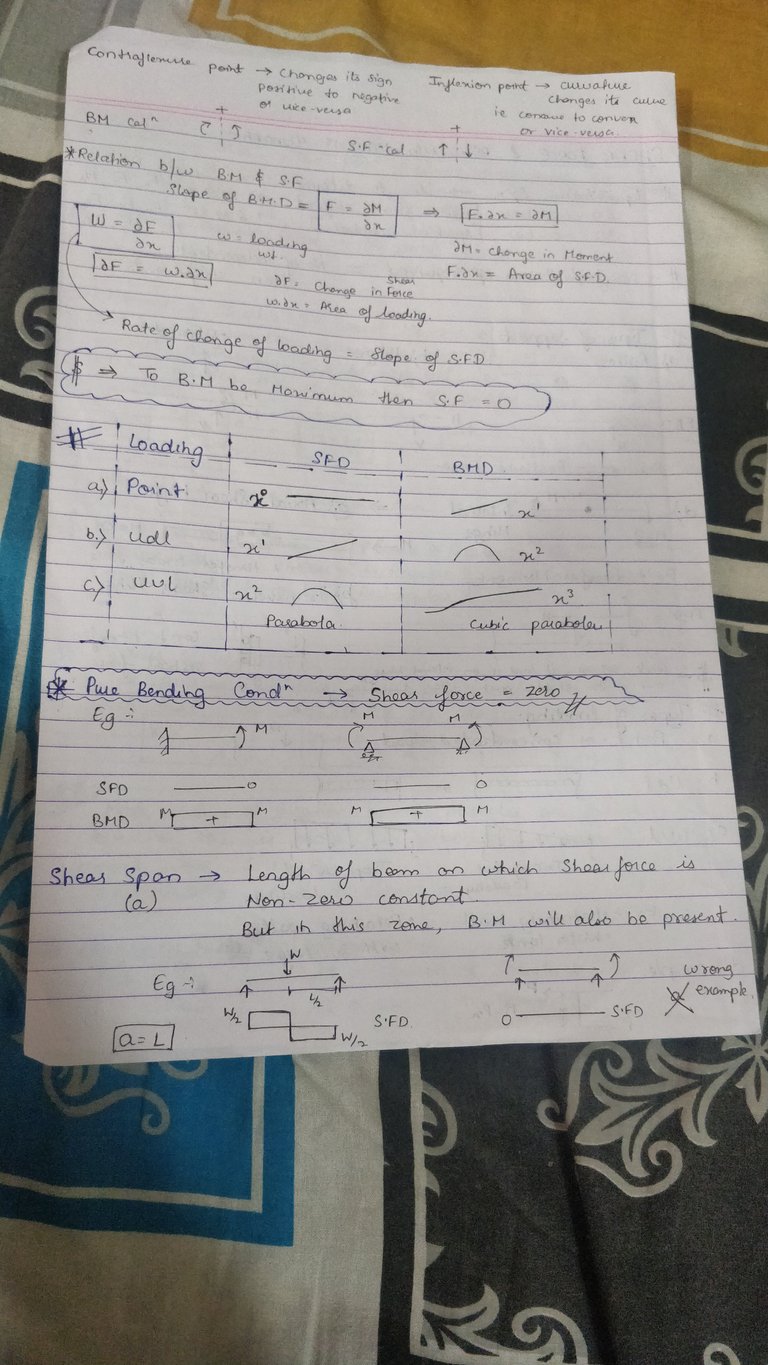 Contraflexure point → Changes its sign
positive to negative
or vice-versa
Inflexion point → curvature
changes its curve
ie concave to convex
or vice-versa.
BM calⁿ + ↻ ↑
S.F-cal + ↑ ↓
*Relation b/w BM & S.F
Slope of B.M.D = F = ∂M/∂x ⇒ F.∂x = ∂M
W = ∂F/∂x
w = loading
wt.
∂M = Change in Moment
F.∂x = Area of S.F.D.
∂F = w.∂x
∂F = Change in Shear Force
w.∂x = Area of loading.
Rate of change of loading = Slope of S.FD
$ ⇒ To B.M be Maximum then S.F = 0
# Loading SFD BMD
a.) Point x⁰ x¹
b.) Udl x¹ x²
c.) UVL x² x³
Parabola. Cubic parabola
* Pure Bending Condⁿ → Shear force = zero //
Eg :- M M M
SFD 0 0
BMD M + M M + M
Shear Span → Length of beam on which Shear force is
(a) Non-zero constant.
But in this zone, B.M will also be present.
Eg :- W L/2
wrong
example.
W/2 W/2 S.F.D.
0 S.F.D
a = L